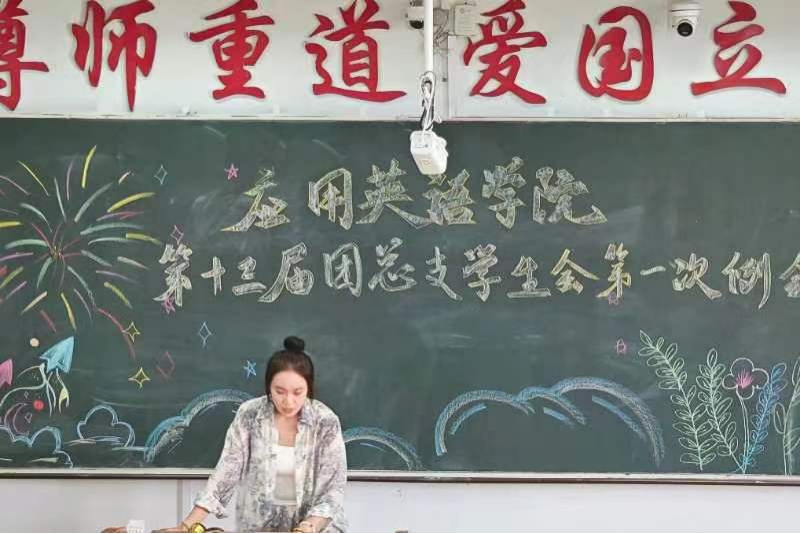 尊师重道爱国立
应用英语学院
第十三届团总支学生会第一次例会